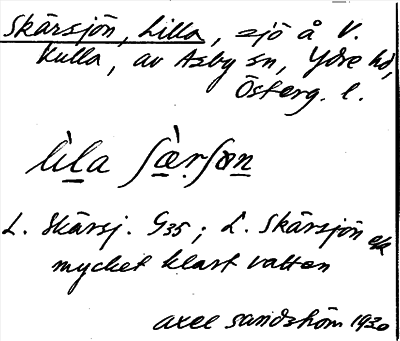 Skärsjön, Lilla, sjö å V.
Kulla, av Asby sn, Ydre hd,
Österg. l.
lìla ʃæ̀rʃøn
L. Skärsj. G35; L. Skärsjön ek
mycket klart vatten
Axel Sandström 1930